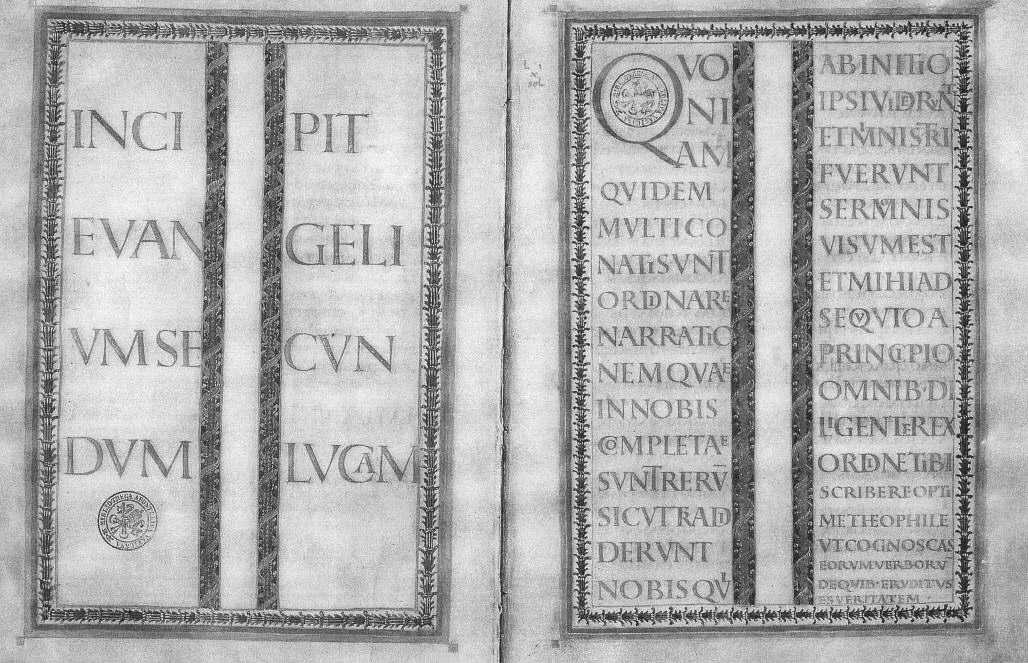 INCI PIT
EVAN GELI
VM SE CVN
DVM LVCAM
QVO
NI
AM
QVIDEM
MVLTI CO
NATI SVNT
ORDINARE
NARRATIO
NEM QVAE
IN NOBIS
COMPLETAE
SVNT RERV̄
SICVT TRADI
DERVNT
NOBIS QVI
AB INITIO
IPSI VIDERVNT
ET MINISTRI
FVERVNT
SERMONIS
VISVM EST
ET MIHI AD
SEQVTO A
PRINCIPIO
OMNIB· DI
LIGENTER EX
ORDINE TIBI
SCRIBERE OPTI
ME THEOPHILE
VT COGNOSCAS
EORVM VERBORV
DE QVIB· ERVDITVS
ES VERITATEM